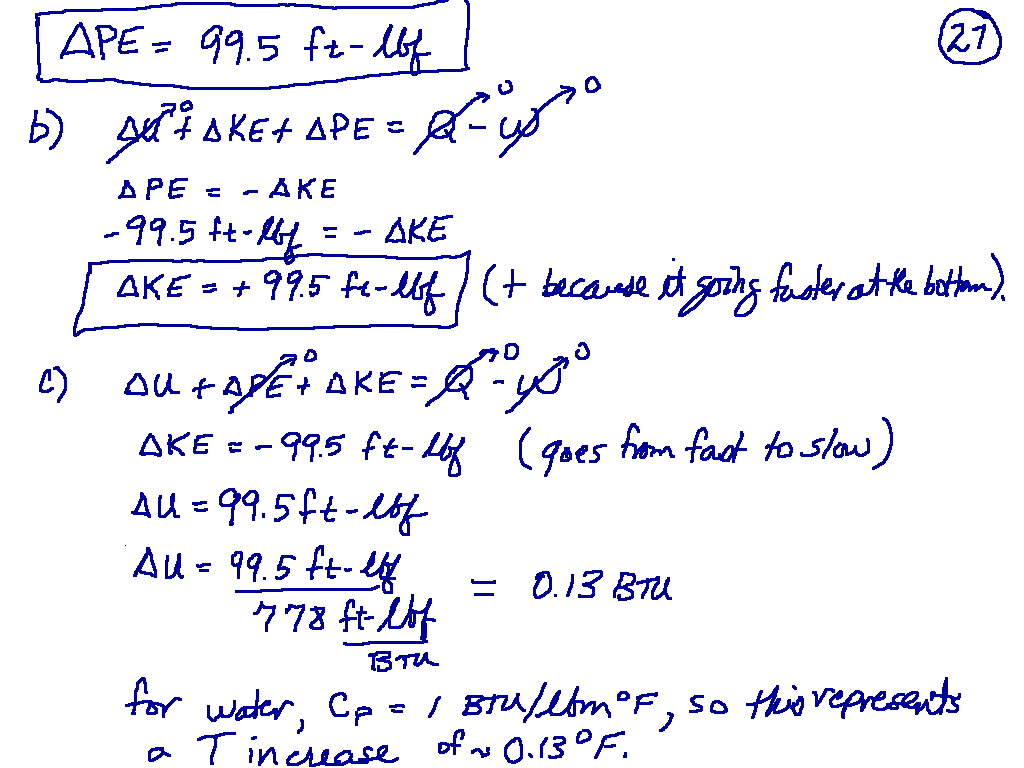 ΔPE = 99.5 ft-lbf
27
b) ΔU→0 + ΔKE + ΔPE = Q→0 - W→0
ΔPE = - ΔKE
-99.5 ft-lbf = - ΔKE
ΔKE = + 99.5 ft-lbf (+ because it going faster at the bottom).
c) ΔU + ΔPE→0 + ΔKE = Q→0 - W→0
ΔKE = - 99.5 ft-lbf (goes from fast to slow)
ΔU = 99.5 ft-lbf
ΔU = 99.5 ft-lbf
= 0.13 BTU
778 ft-lbf
BTU
for water, Cp = 1 BTU/lbm°F, so this represents
a T increase of ~ 0.13°F.